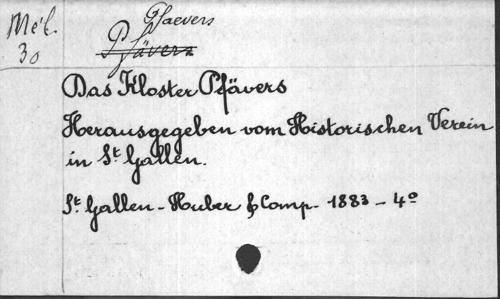 Mél. 30
Pfaevers
Pfävers
Das Kloster Pfävers
Herausgegeben vom Historischen Verein
in St. Gallen.
St. Gallen - Huber & Comp. 1883 - 4º